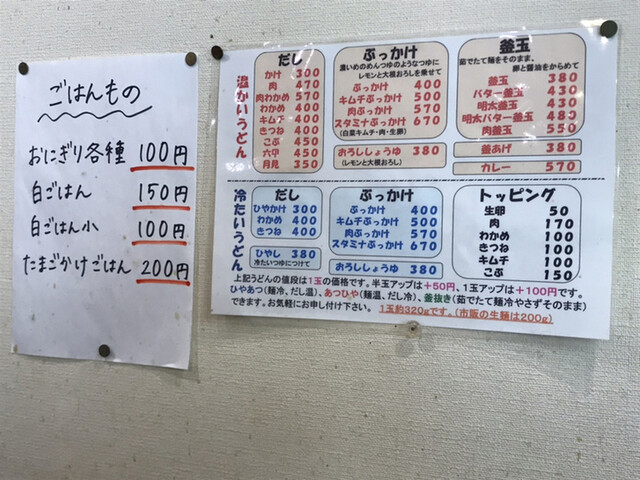 ごはんもの
おにぎり各種 100円
白ごはん 150円
白ごはん小 100円
たまごかけごはん 200円
温かいうどん
だし
かけ 300
肉 470
肉わかめ 570
わかめ 400
キムチ 400
きつね 400
こぶ 450
六甲 450
月見 350
ぶっかけ
濃いめのめんつゆのようなつゆに
レモンと大根おろしを乗せて
ぶっかけ 400
キムチぶっかけ 500
肉ぶっかけ 570
スタミナぶっかけ 670
(白菜キムチ・肉・生卵)
おろししょうゆ 380
(レモンと大根おろし)
釜玉
茹でたて麺をそのまま、
卵と醤油をからめて
釜玉 380
バター釜玉 430
明太釜玉 430
明太バター釜玉 480
肉釜玉 550
釜あげ 380
カレー 570
冷たいうどん
だし
ひやかけ 300
わかめ 400
きつね 400
ひやし 380
冷たいつゆにつけて
ぶっかけ
ぶっかけ 400
キムチぶっかけ 500
肉ぶっかけ 570
スタミナぶっかけ 670
おろししょうゆ 380
トッピング
生卵 50
肉 170
わかめ 100
きつね 100
キムチ 100
こぶ 150
上記うどんの値段は1玉の価格です。半玉アップは+50円、1玉アップは+100円です。
ひやあつ(麺冷、だし温)、あつひや(麺温、だし冷)、釜抜き(茹でたて麺冷やさずそのまま)
できます。お気軽にお申し付け下さい。 1玉約320gです。(市販の生麺は200g)